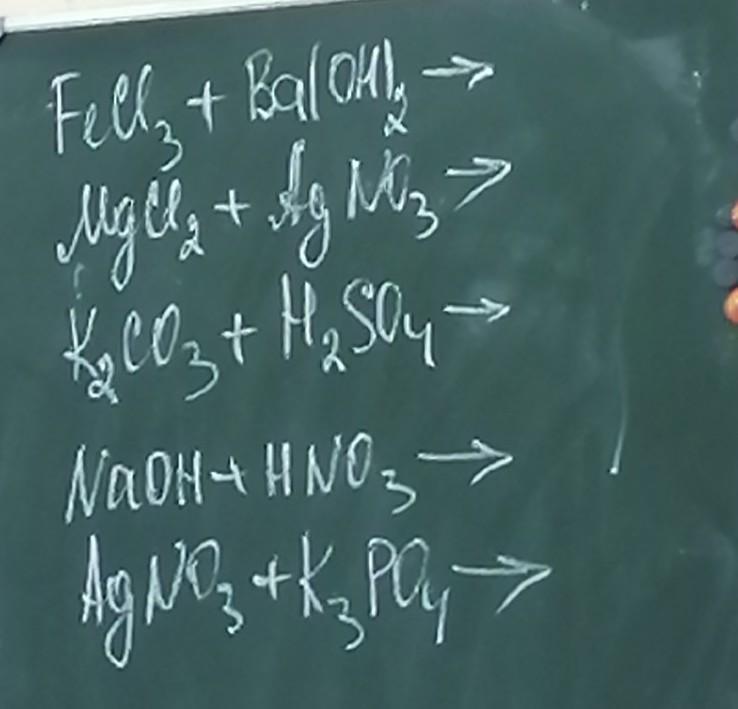 FeCl₃ + Ba(OH)₂ →
MgCl₂ + AgNO₃ →
K₂CO₃ + H₂SO₄ →
NaOH + HNO₃ →
AgNO₃ + K₃PO₄ →